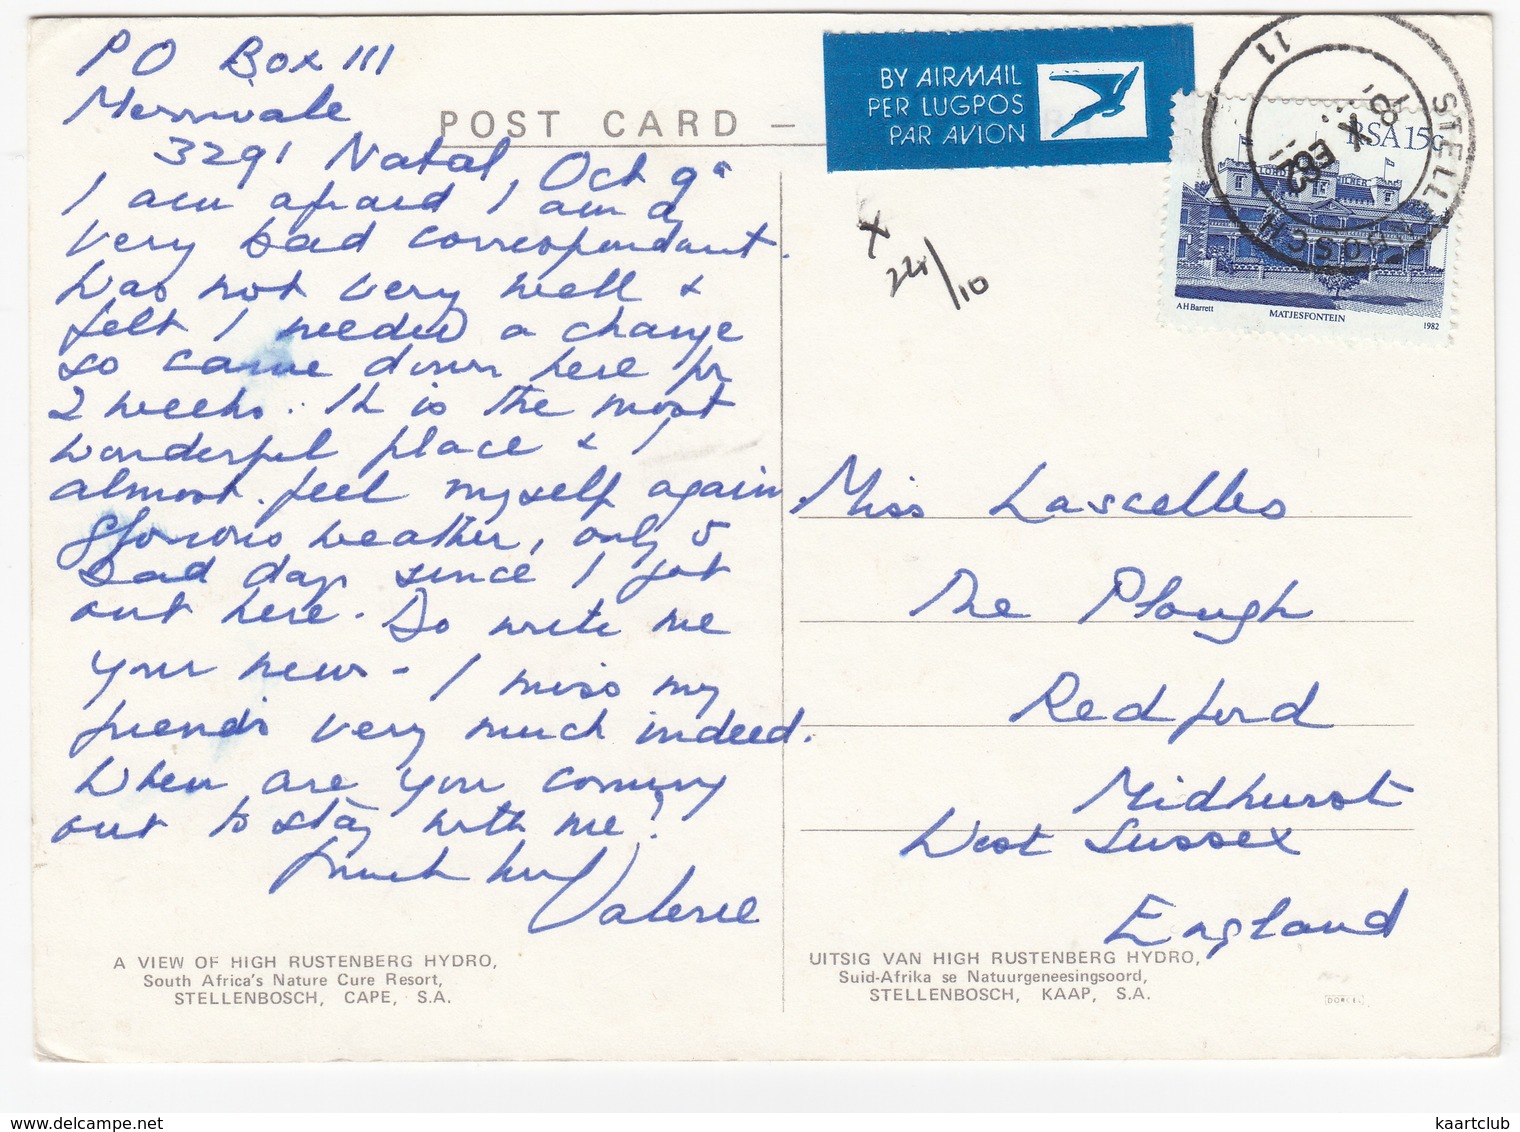 PO Box 111
Merrivale
3291 Natal, Oct 9th
POST CARD —
I am afraid I am a
very bad correspondant.
Was not very well &
felt I needed a change
so came down here for
2 weeks. It is the most
wonderful place & I
almost feel myself again
Glorious weather, only 5
bad days since I got
out here. Do write me
your news - I miss my
friends very much indeed.
When are you coming
out to stay with me?
Much love
Valerie
A VIEW OF HIGH RUSTENBERG HYDRO,
South Africa's Nature Cure Resort,
STELLENBOSCH, CAPE, S.A.
BY AIRMAIL
PER LUGPOS
PAR AVION
STELLENBOSCH
11
RSA 15c
LORD MILNER
AH Barrett
MATJESFONTEIN
1982
X
22x/10
Miss Lascelles
The Plough
Redford
Midhurst
West Sussex
England
UITSIG VAN HIGH RUSTENBERG HYDRO,
Suid-Afrika se Natuurgeneesingsoord,
STELLENBOSCH, KAAP, S.A.
kaartclub